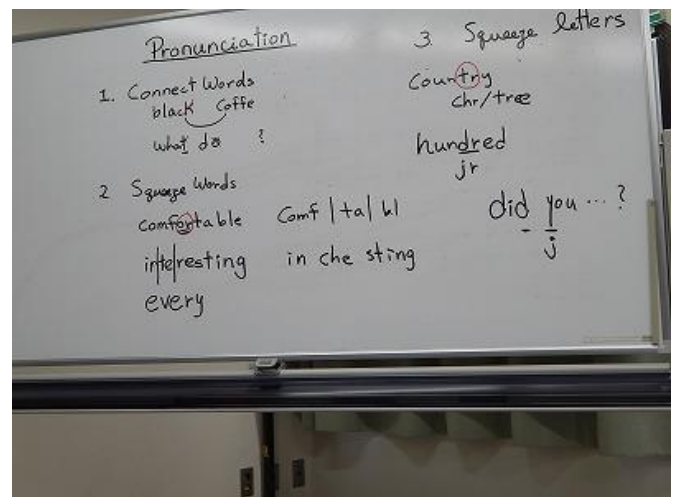 Pronunciation
1. Connect Words
black Coffe
what do ?
2 Squeeze Words
comfortable Comf | ta | bl
interesting in che sting
every
3. Squeeze letters
country
chr/tree
hundred
jr
did you ... ?
j